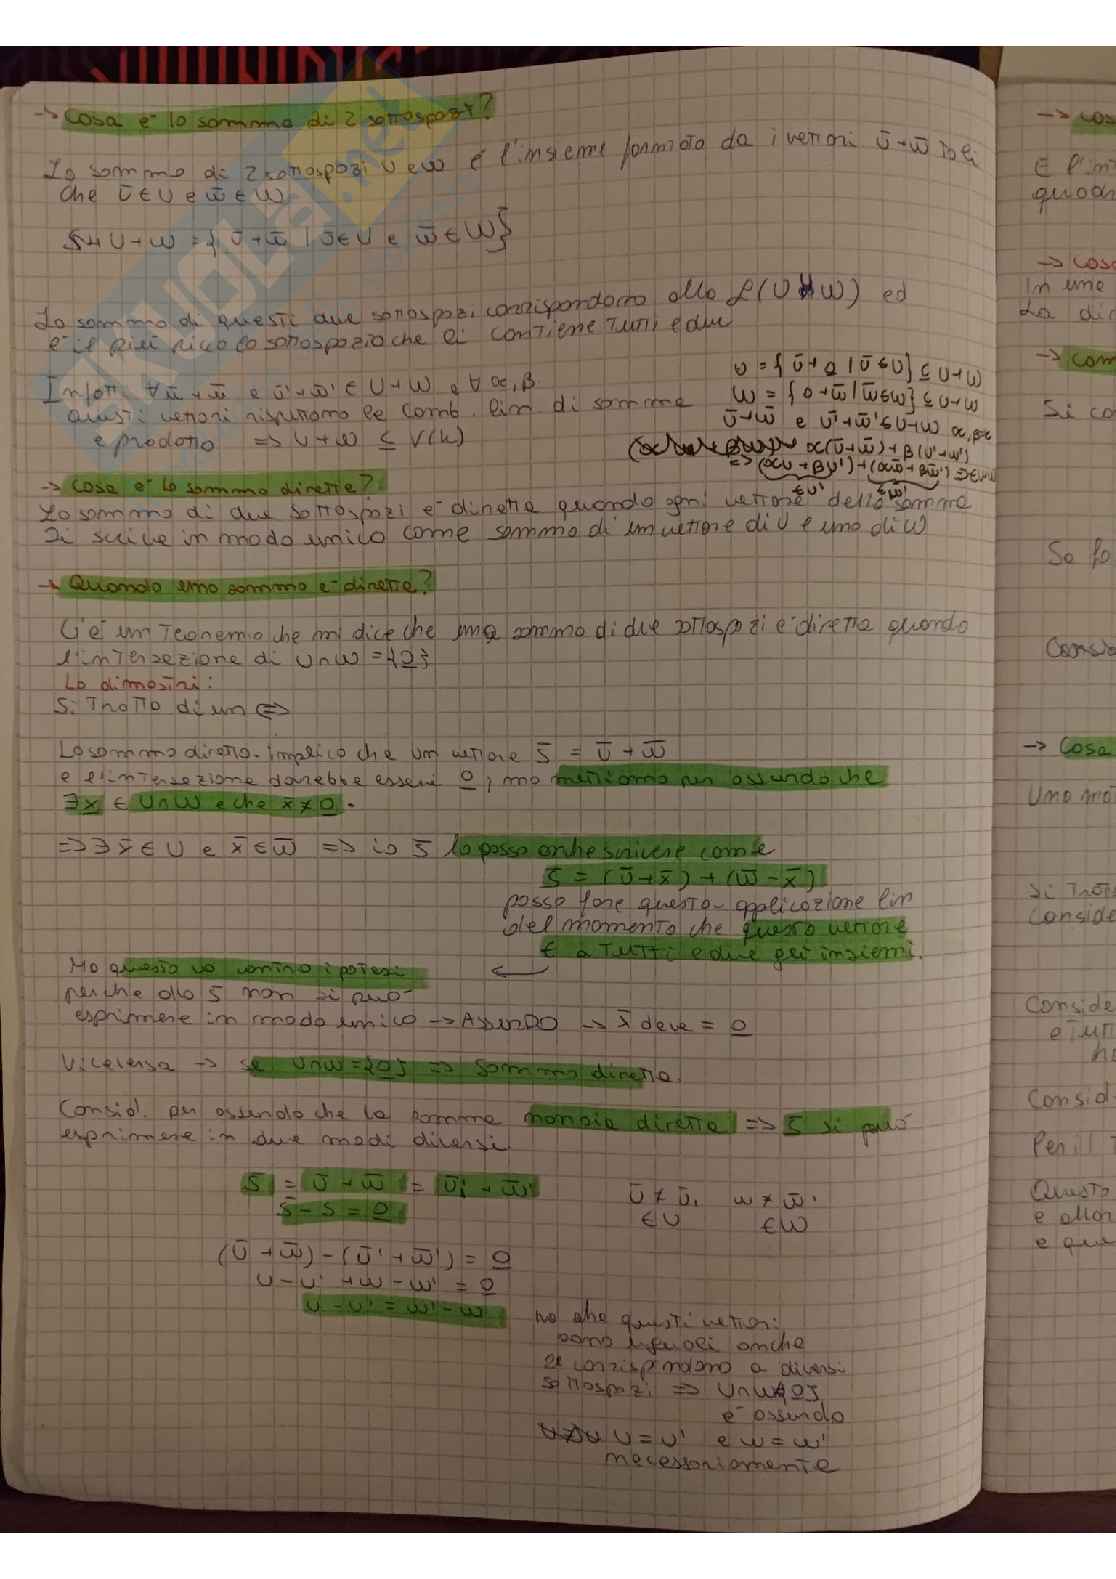 → Cosa è la somma di 2 sottospazi?
La somma di 2 sottospazi U e W è l'insieme formato da i vettori ū+w̄ tali
che ū∈U e w̄∈W
U+W = { ū+w̄ | ū∈U e w̄∈W }
La somma di questi due sottospazi corrispondono alla L(U W) ed
è il più piccolo sottospazio che li contiene tutti e due
U = { ū+0 | ū∈U} ⊆ U+W
Infatti ∀ū+w̄ e ū'+w̄' ∈ U+W e ∀ α,β
W = { 0+w̄ | w̄∈W} ⊆ U+W
questi vettori rispettano le comb. lin. di somma
ū+w̄ e ū'+w̄'∈U+W α,β∈
e prodotto => U+W ⊆ V(K)
α(ū+w̄)+β(ū'+w̄')
=> (αū+βū')+(αw̄+βw̄') =>
→ Cosa è la somma diretta?
La somma di due sottospazi è diretta quando ogni vettore della somma
si scrive in modo unico come somma di un vettore di U e uno di W
→ Quando una somma è diretta?
C'è un teorema che mi dice che una somma di due sottospazi è diretta quando
l'intersezione di U∩W = {0}
Lo dimostri:
Si tratta di un <=>
La somma diretta implica che un vettore s̄ = ū + w̄
e l'intersezione dovrebbe essere 0, ma mettiamo per assurdo che
∃x ∈ U∩W e che x̄≠0.
=> ∃ x̄∈U e x̄∈W̄ => io s̄ lo posso anche scrivere come
s̄ = (ū+x̄) + (w̄-x̄)
posso fare questa applicazione lin
dal momento che questo vettore
∈ a tutti e due gli insiemi.
Ma questo va contro ipotesi ←
perché allo s̄ non si può
esprimere in modo unico → ASSURDO → x̄ deve = 0
Viceversa → se U∩W={0} => somma diretta.
Consid. per assurdo che la somma non sia diretta => s̄ si può
esprimere in due modi diversi
s̄ = ū + w̄ = ū' + w̄'
ū ≠ ū' w ≠ w̄'
s̄ - s = 0
∈U ∈W
(ū+w̄)-(ū'+w̄') = 0
u-u' +w-w' = 0
u-u' = w'-w
ho che questi vettori
sono uguali anche
se corrispondono a diversi
sottospazi => U∩W≠{0}
è assurdo
U=U' e W=W'
necessariamente
→ cos
È l'in
quan
→ Cosa
In une
La dir
→ Com
Si co
Se fo
Consid
→ Cosa
Una mat
Si trat
Conside
Conside
e tutt
Consid
Per il
Questo
e allor
e que